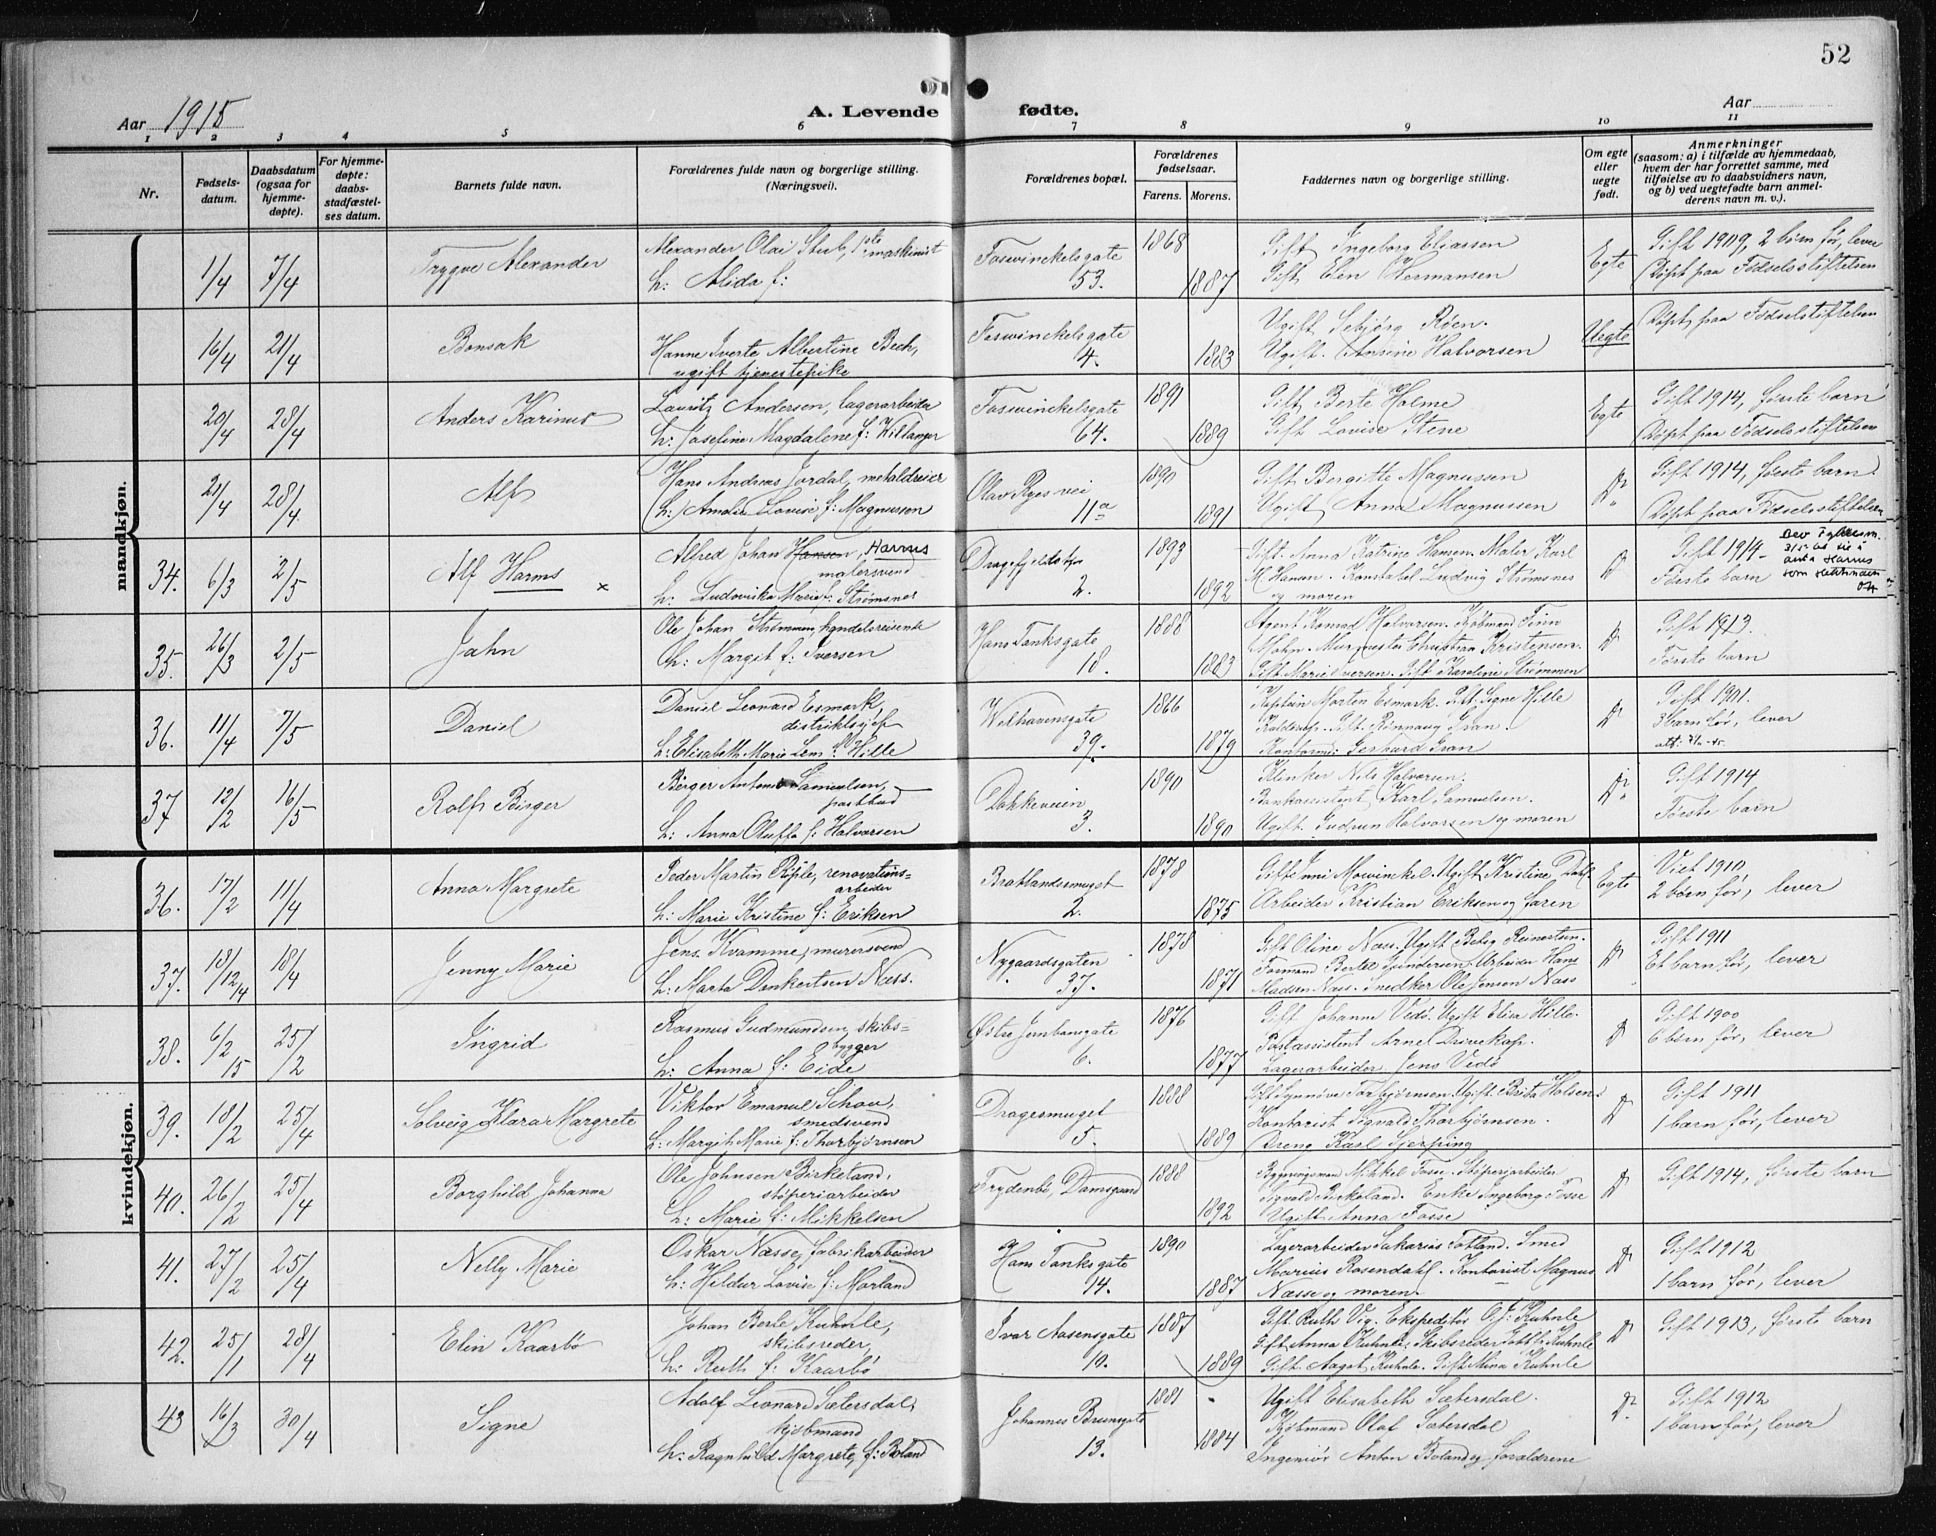 52
Aar 1915
A. Levende fødte.
Aar
1 2 3 4 5 6 7 8 9 10 11
Nr.
Fødsels-
datum.
Daabsdatum
(ogsaa for
hjemme-
døpte).
For hjemme-
døpte:
daabs-
stadfæstel-
ses datum.
Barnets fulde navn.
Forældrenes fulde navn og borgerlige stilling.
(Næringsvei).
Forældrenes bopæl.
Forældrenes
fødselsaar.
Farens. Morens.
Faddernes navn og borgerlige stilling.
Om egte
eller
uegte
født.
Anmerkninger
(saasom: a) i tilfælde av hjemmedaab,
hvem der har forrettet samme, med
tilføielse av to daabsvidners navn,
og b) ved uegtefødte barn anmel-
derens navn m. v.).
mandkjøn.
1/4 7/4 Trygve Alexander
Alexander Olai Stub, 1ste maskinist
h: Alida f:
Foswinckelsgate
53.
1868 1887
Gift Ingeborg Eliassen
Gift Elen Hermansen
Egte
Gift 1909, 2 børn før, lever
Døpt paa Fødselsstiftelsen
16/4 21/4 Bonsak
Hanne Iverte Albertine Bech,
ugift tjenestepike
Foswinckelsgate
4.
1883
Ugift Sebjørg Røen.
Ugift. Ansine Halvorsen
Uegte
Døpt paa Fødselsstiftelsen
20/4 28/4 Anders Karinus
Lauritz Andersen, lagerarbeider
h: Josefine Magdalene f: Willanger
Foswinckelsgate
64.
1891 1889
Gift Berte Holme
Gift Lovise Stene
Egte
Gift 1914, første barn
Døpt paa Fødselsstiftelsen
21/4 28/4 Alf
Hans Andreas Jordal, metaldreier
h: Amalie Lovise f: Magnussen
Olav Ryes vei
11a
1890 1891
Gift Bergitte Magnussen
Ugift Anna Magnussen
Do
Gift 1914, første barn.
Døpt paa Fødselsstiftelsen
34. 6/3 2/5 Alf Harms x
Alfred Johan Hansen, Harms
malersvend
h: Ludovika Marie f: Strømsnes
Dragefjeldstrp.
2.
1893 1892
Gift. Anna Katrine Hansen. Maler Karl
M. Hansen. Konstabel Ludvig Strømsnes
og moren
Do
Gift 1914
Første barn
35. 26/3 2/5 Jahn
Ole Johan Strømmen, handelsreisende
h: Margit f: Iversen
Hans Tanksgate
18.
1888 1883
Agent Konrad Halvorsen. Kjøbmand Finn
Mohn. Murmester Christian Kristensen.
Gift Marie Iversen. Gift Karoline Strømmen
Do
Gift 1913.
Første barn
36. 11/4 7/5 Daniel
Daniel Leonard Esmark,
distriktssjef
h: Elisabeth Marie Lem f: Hille
Welhavensgate
39.
1866 1879
Kaptein Morten Esmark. Gift Signe Hille
Gift. Rønnaug Gran.
Gerhard Gran
Do
Gift 1901.
3 barn før, lever
37. 12/2 16/5 Rolf Birger
Birger Antonio Samuelsen,
postbud
h: Anna Oluffa f: Halvorsen
Dokkeveien
3.
1890 1890
Klinker Nils Halvorsen.
Bankassistent Karl Samuelsen.
Ugift. Gudrun Halvorsen og moren
Do
Gift 1914
Første barn
kvindekjøn.
36. 17/2 11/4 Anna Margrete
Peder Martin Pøple, renovations-
arbeider
h: Marie Kristine f: Eriksen
Bratlandssmuget
2.
1878 1875
Gift Inni Mowinkel. Ugift Kristine Dahl.
Arbeider Kristian Eriksen og faren
Egte
Viet 1910,
2 børn før, lever
37. 18/12 14 18/4 Jenny Marie
Jens Kvamme, murersvend
h: Marta Dankertsen Næss.
Nygaardsgaten
37.
1878 1871
Gift Oline Næss. Ugift Betsy Reinertsen.
Formand Bertel Gundersen. Arbeider Hans
Madsen Næss. Snedker Ole Jensen Næss
Do
Gift 1911
Et barn før, lever
38. 6/2 15 25/2 Ingrid
Rasmus Gudmundsen, skibs-
bygger
h: Anna f: Eide
Østre Jernbanegate
6.
1876 1877
Gift Johanne Vedø. Ugift Elisa Hille.
Postassistent Arne Drivekap.
Lagerarbeider Jens Vedø
Do
Gift 1900
6 børn før, lever
39. 18/2 25/4 Solveig Klara Margrete
Viktor Emanuel Schau,
smedsvend
h: Margit Marie f: Thorbjørnsen
Dragesmuget
5.
1888 1889
Gift Synnøve Torbjørnsen. Ugift. Brita Holsen
Kontorist Sigvald Thorbjørnsen.
Dreng Karl Gjerping
Do
Gift 1911
1 barn før, lever
40. 26/2 25/4 Borghild Johanna
Ole Johnsen Birkeland,
støperiarbeider
h: Marie f: Mikkelsen
Frydenbø, Damsgaard
1888 1892
Mikkel Fosse. Støperiarbeider
Sigvald Birkeland. Enke Ingeborg Fosse
Ugift Anna Fosse
Do
Gift 1914, første barn
41. 27/2 25/4 Nelly Marie
Oskar Næsse, fabrikarbeider
h: Hildur Lovise f: Morland
Hans Tanksgate
14.
1890 1887
Lagerarbeider Sakarias Totland. Smed
Marius Rosendahl. Kontorist Magnus
Næsse og moren.
Do
Gift 1912
1 barn før, lever
42. 25/1 28/4 Elin Kaarbø
Johan Berle Kuhnle,
skibsreder,
h: Ruth f: Kaarbø
Ivar Aasensgate
10.
1887 1889
Gift Ruth Vig. Ekspeditør O. f. Kuhnle
Gift Anna Kuhnle. Skibsreder Gottl. Kuhnle
Gift Aagot Kuhnle. Gift Mina Kuhnle
Do
Gift 1913, første barn
43 16/3 30/4 Signe
Adolf Leonard Sætersdal,
kjøbmand
h: Ragnhild Margrete, f: Boland
Johannes Brunsgate
13.
1881 1884
Ugift Elisabeth Sætersdal.
Kjøbmand Olaf Sætersdal
Ingeniør Anton Boland og forældrene
Do
Gift 1912
1 barn før, lever